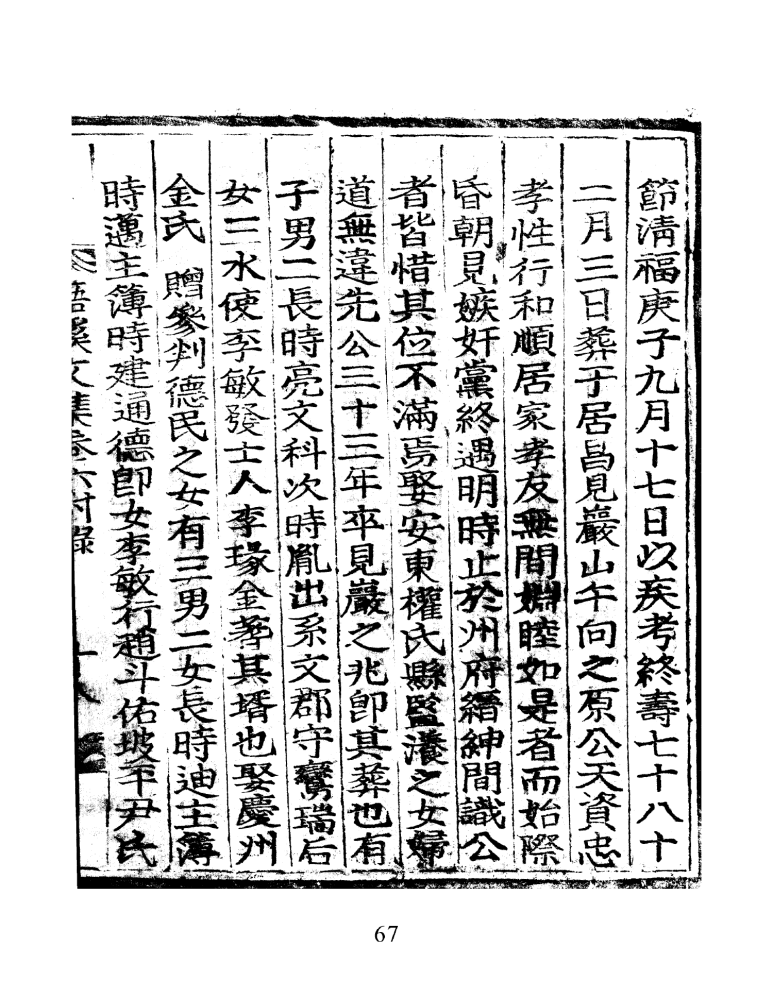 節淸福庚子九月十七日以疾考終壽七十八十
二月三日葬于居昌見巖山午向之原公天資忠
孝性行和順居家孝友無間婣睦如是者而始際
昏朝見嫉奸黨終遇明時止於州府縉紳間識公
者皆惜其位不滿焉娶安東權氏縣監瀁之女婦
道無違先公三十三年卒見巖之兆卽其葬也有
子男二長時亮文科次時胤出系文郡守鸞瑞后
女三水使李敏發士人李瑑金㝯其壻也娶慶州
金氏 贈參判德民之女有三男二女長時迪主簿
時邁主簿時建通德郞女李敏行趙斗佑坡平尹氏
文集卷六附錄
67